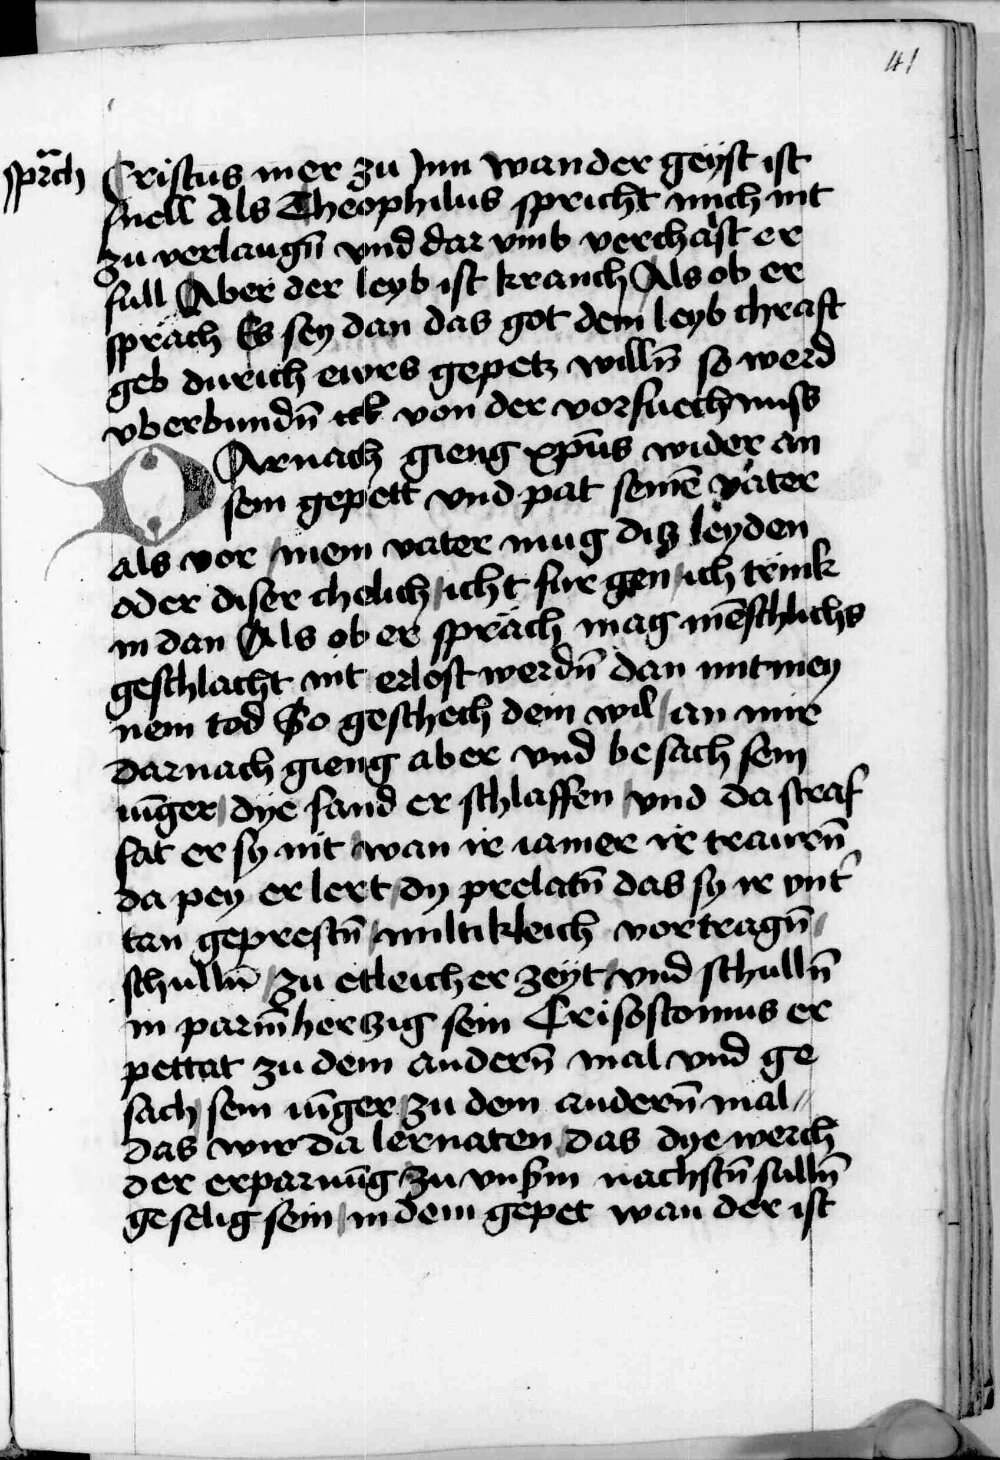 41
sprach Cristus mer zu Jnn wan der geÿst ist
snell Als Theophilus spricht mich nit
zu verlaugn̄ vnd dar vmb verchäst er
full Aber der leyb ist kranch Als ob er
spräch Es seÿ dan das got dem leyb chraft
geb durich ewrs gepetz willn̄ so werd
vberbundn̄ von der vorsuechnuss
DArnach gieng xp̄us wider an
sein gepett vnd pat seinē vater
als vor mein vater mug ditz leyden
oder diser chelich icht fur gen ich trink
in dan Als ob er spräch mag mēschlichs
geschlächt nit erlost werdn̄ dan mit mey
nem tod So geschech dein wil an mir
darnach gieng aber vnd besach sein
iūger dye fand er schlaffen vnd da straf
fat er sy nit wan ir iamer ir traurn̄
da peÿ er lert dy prelatn̄ das sy ir vnt̉
tan geprestn̄ miltikleich vortragn̄
schulln̄ zu etleicher zeyt vnd schulln̄
in parm̄herzig sein Crisostomus er
pettat zu dem andern̄ mal vnd ge
sach sein iūger zu dem andern̄ mal
das wir da lernaten das dye werch
der erparmūg zu vnßm nachstn̄ sulln̄
geselig sein in dem gepet wan der ist